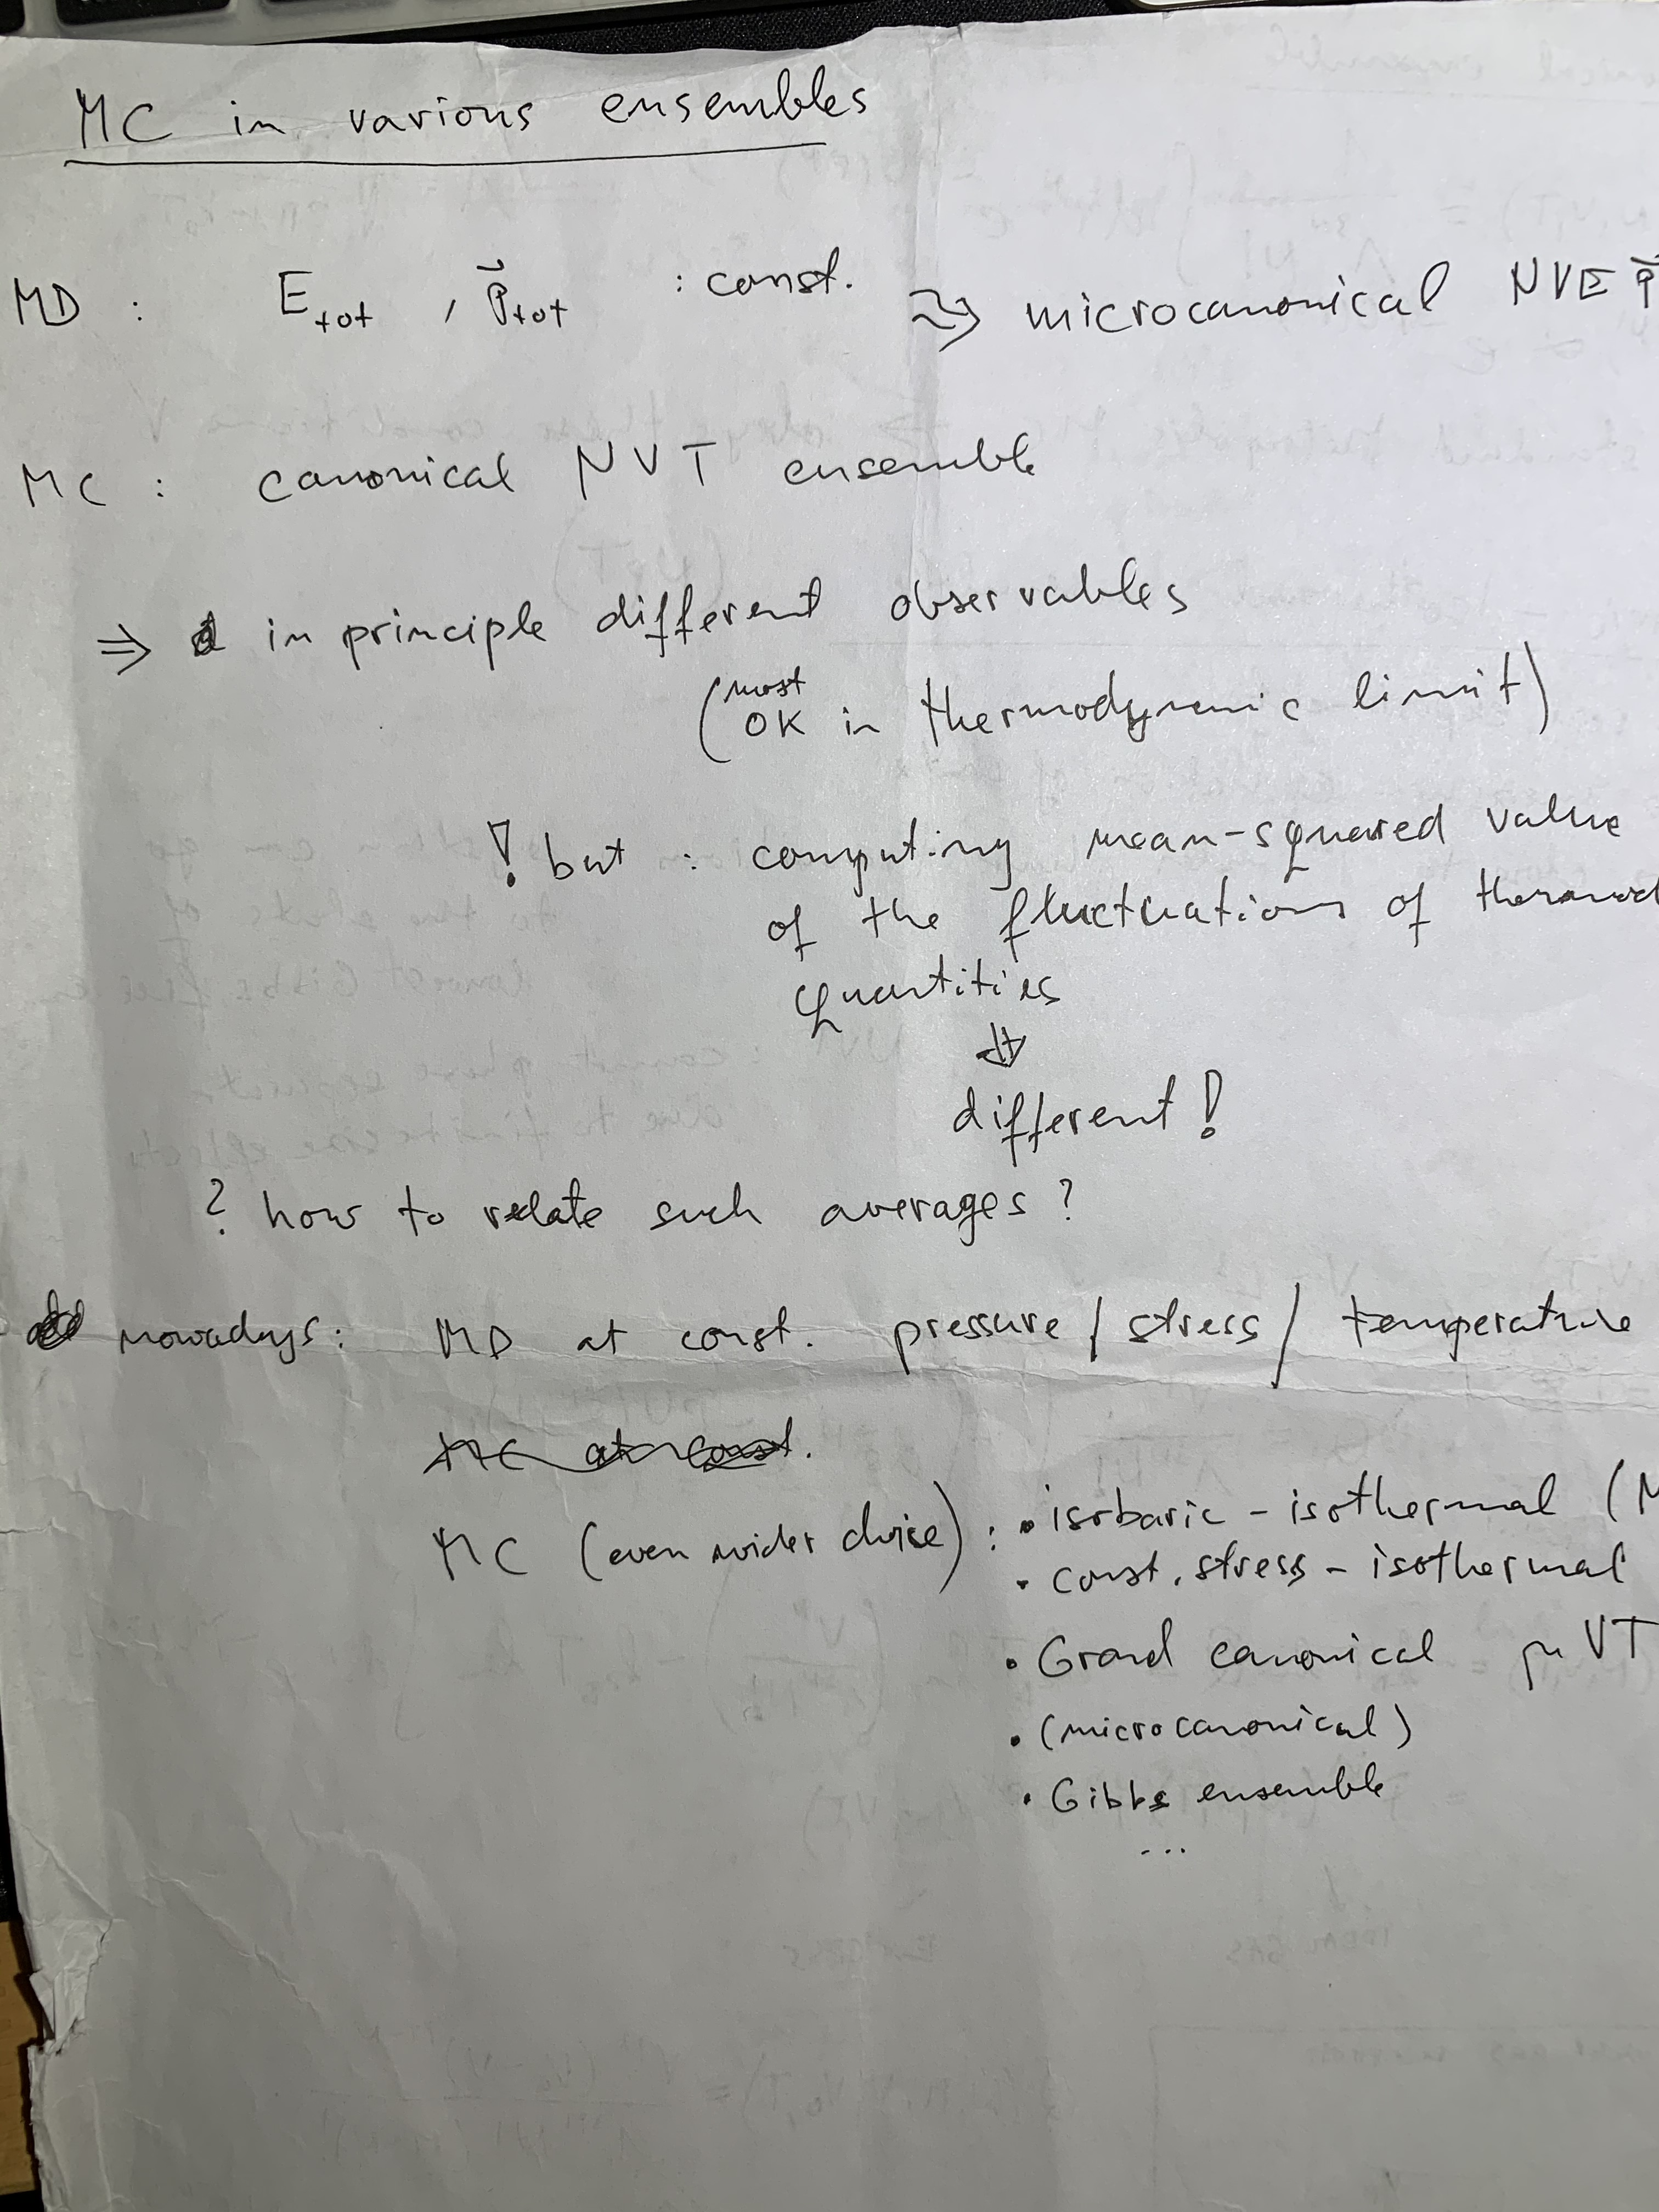 MC in various ensembles
MD : E_tot , p⃗_tot : const. ⇝ microcanonical NVE P⃗
MC : canonical NVT ensemble
⇒ in principle different observables
(most OK in thermodynamic limit)
! but : computing mean-squared value
of the fluctuations of thermod
quantities
⇓
different!
? how to relate such averages?
nowadays: MD at const. pressure / stress / temperature
MC at const.
MC (even wider choice) : • isobaric - isothermal (N
• const. stress - isothermal
• Grand canonical μVT
• (microcanonical)
• Gibbs ensemble
...